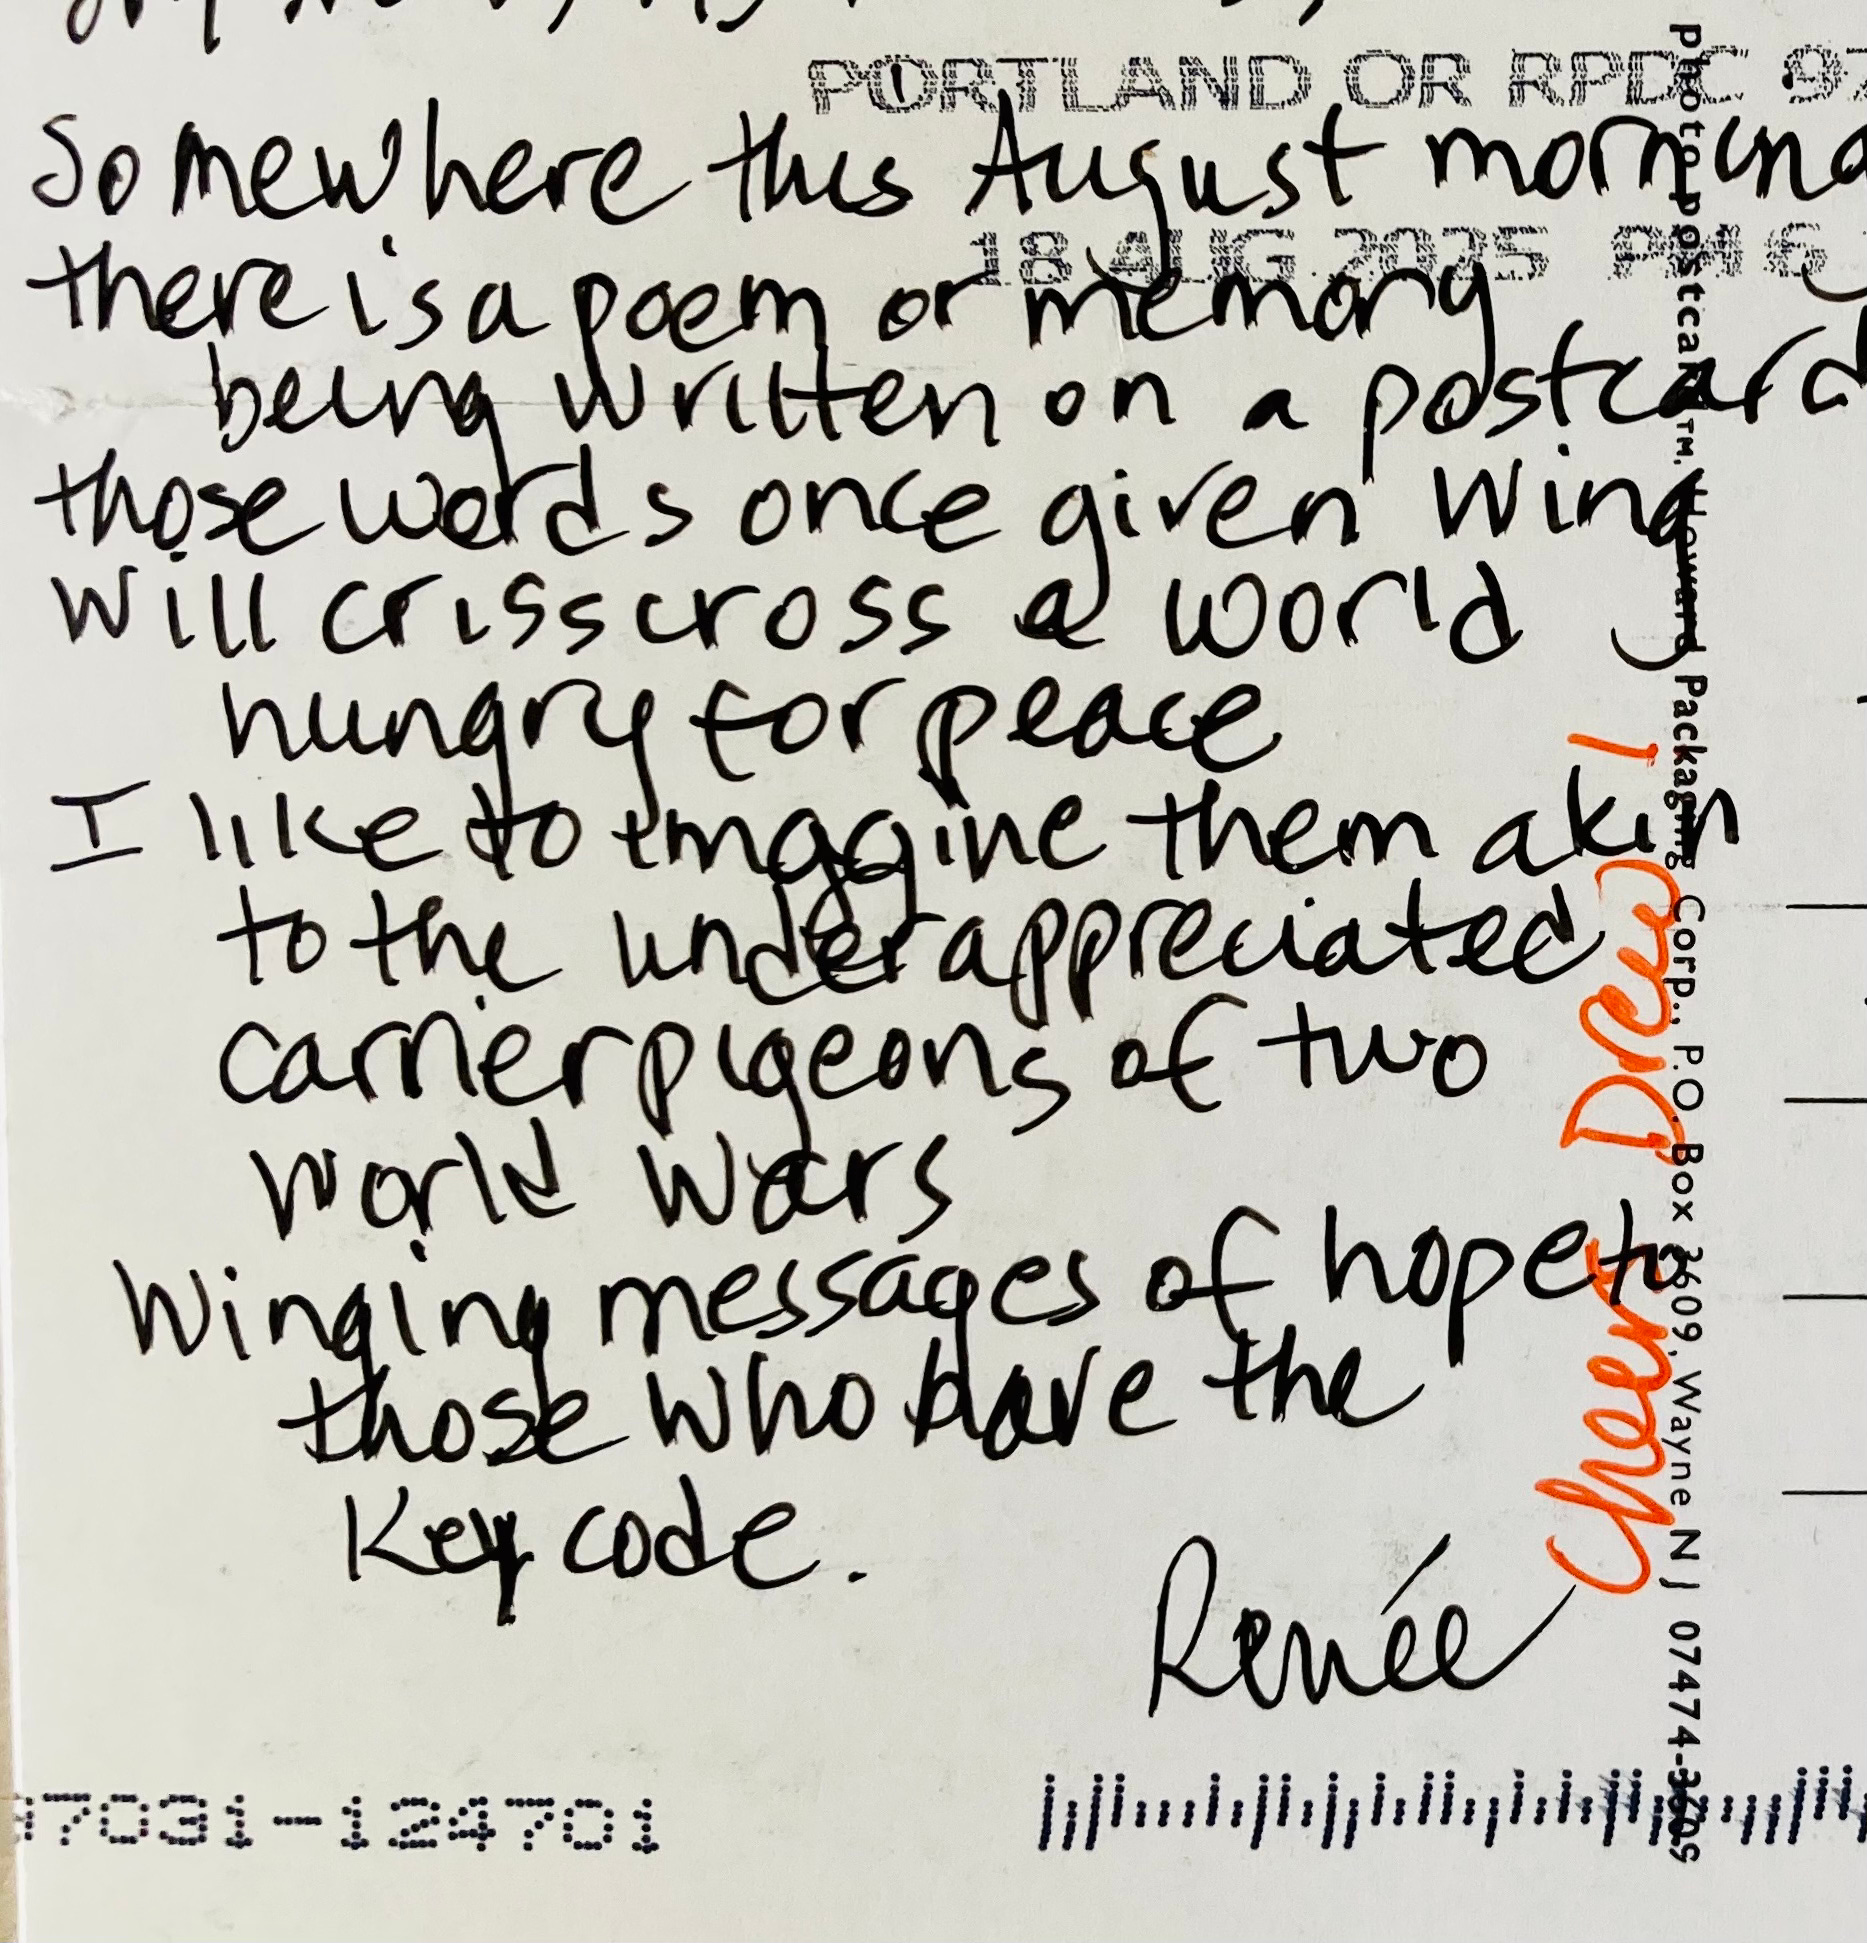 PORTLAND OR RPDC 97
Somewhere this August morning
18 AUG 2025 PM 6
there is a poem or memory
being written on a postcard
those words once given wing
will crisscross a world
hungry for peace
I like to imagine them akin
to the underappreciated
carrier pigeons of two
world wars
Winging messages of hope to
those who have the
Key code.
Renée
Cheers Drew!
photo postcard™. Howard Packaging Corp., P.O. Box 3609, Wayne NJ 07474-3609
97031-124701